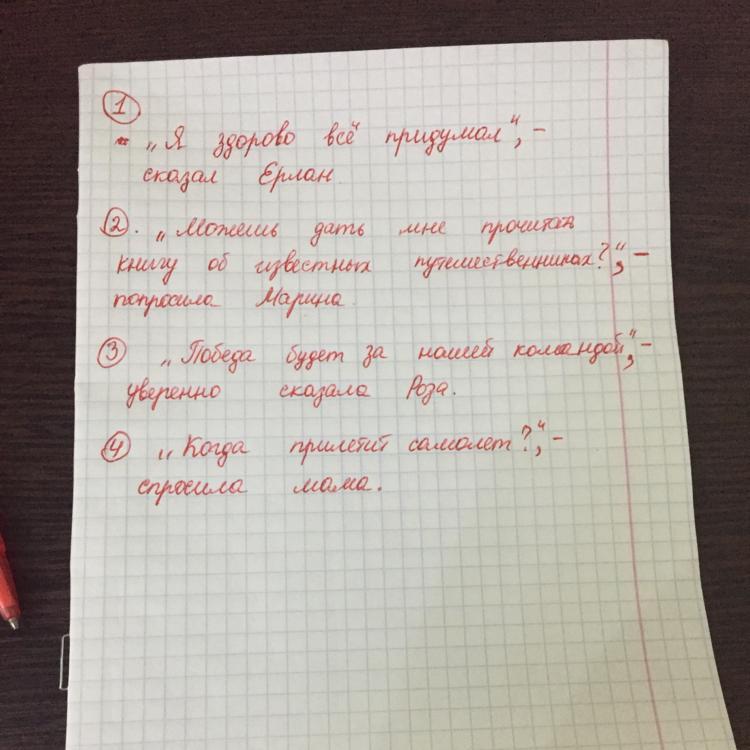 1
„Я здорово всё придумал“, –
сказал Ерлан
2. „Можешь дать мне прочитать
книгу об известных путешественниках?“, –
попросила Марина.
3 „Победа будет за нашей командой“, –
уверенно сказала Роза.
4 „Когда прилетит самолет?“, –
спросила мама.